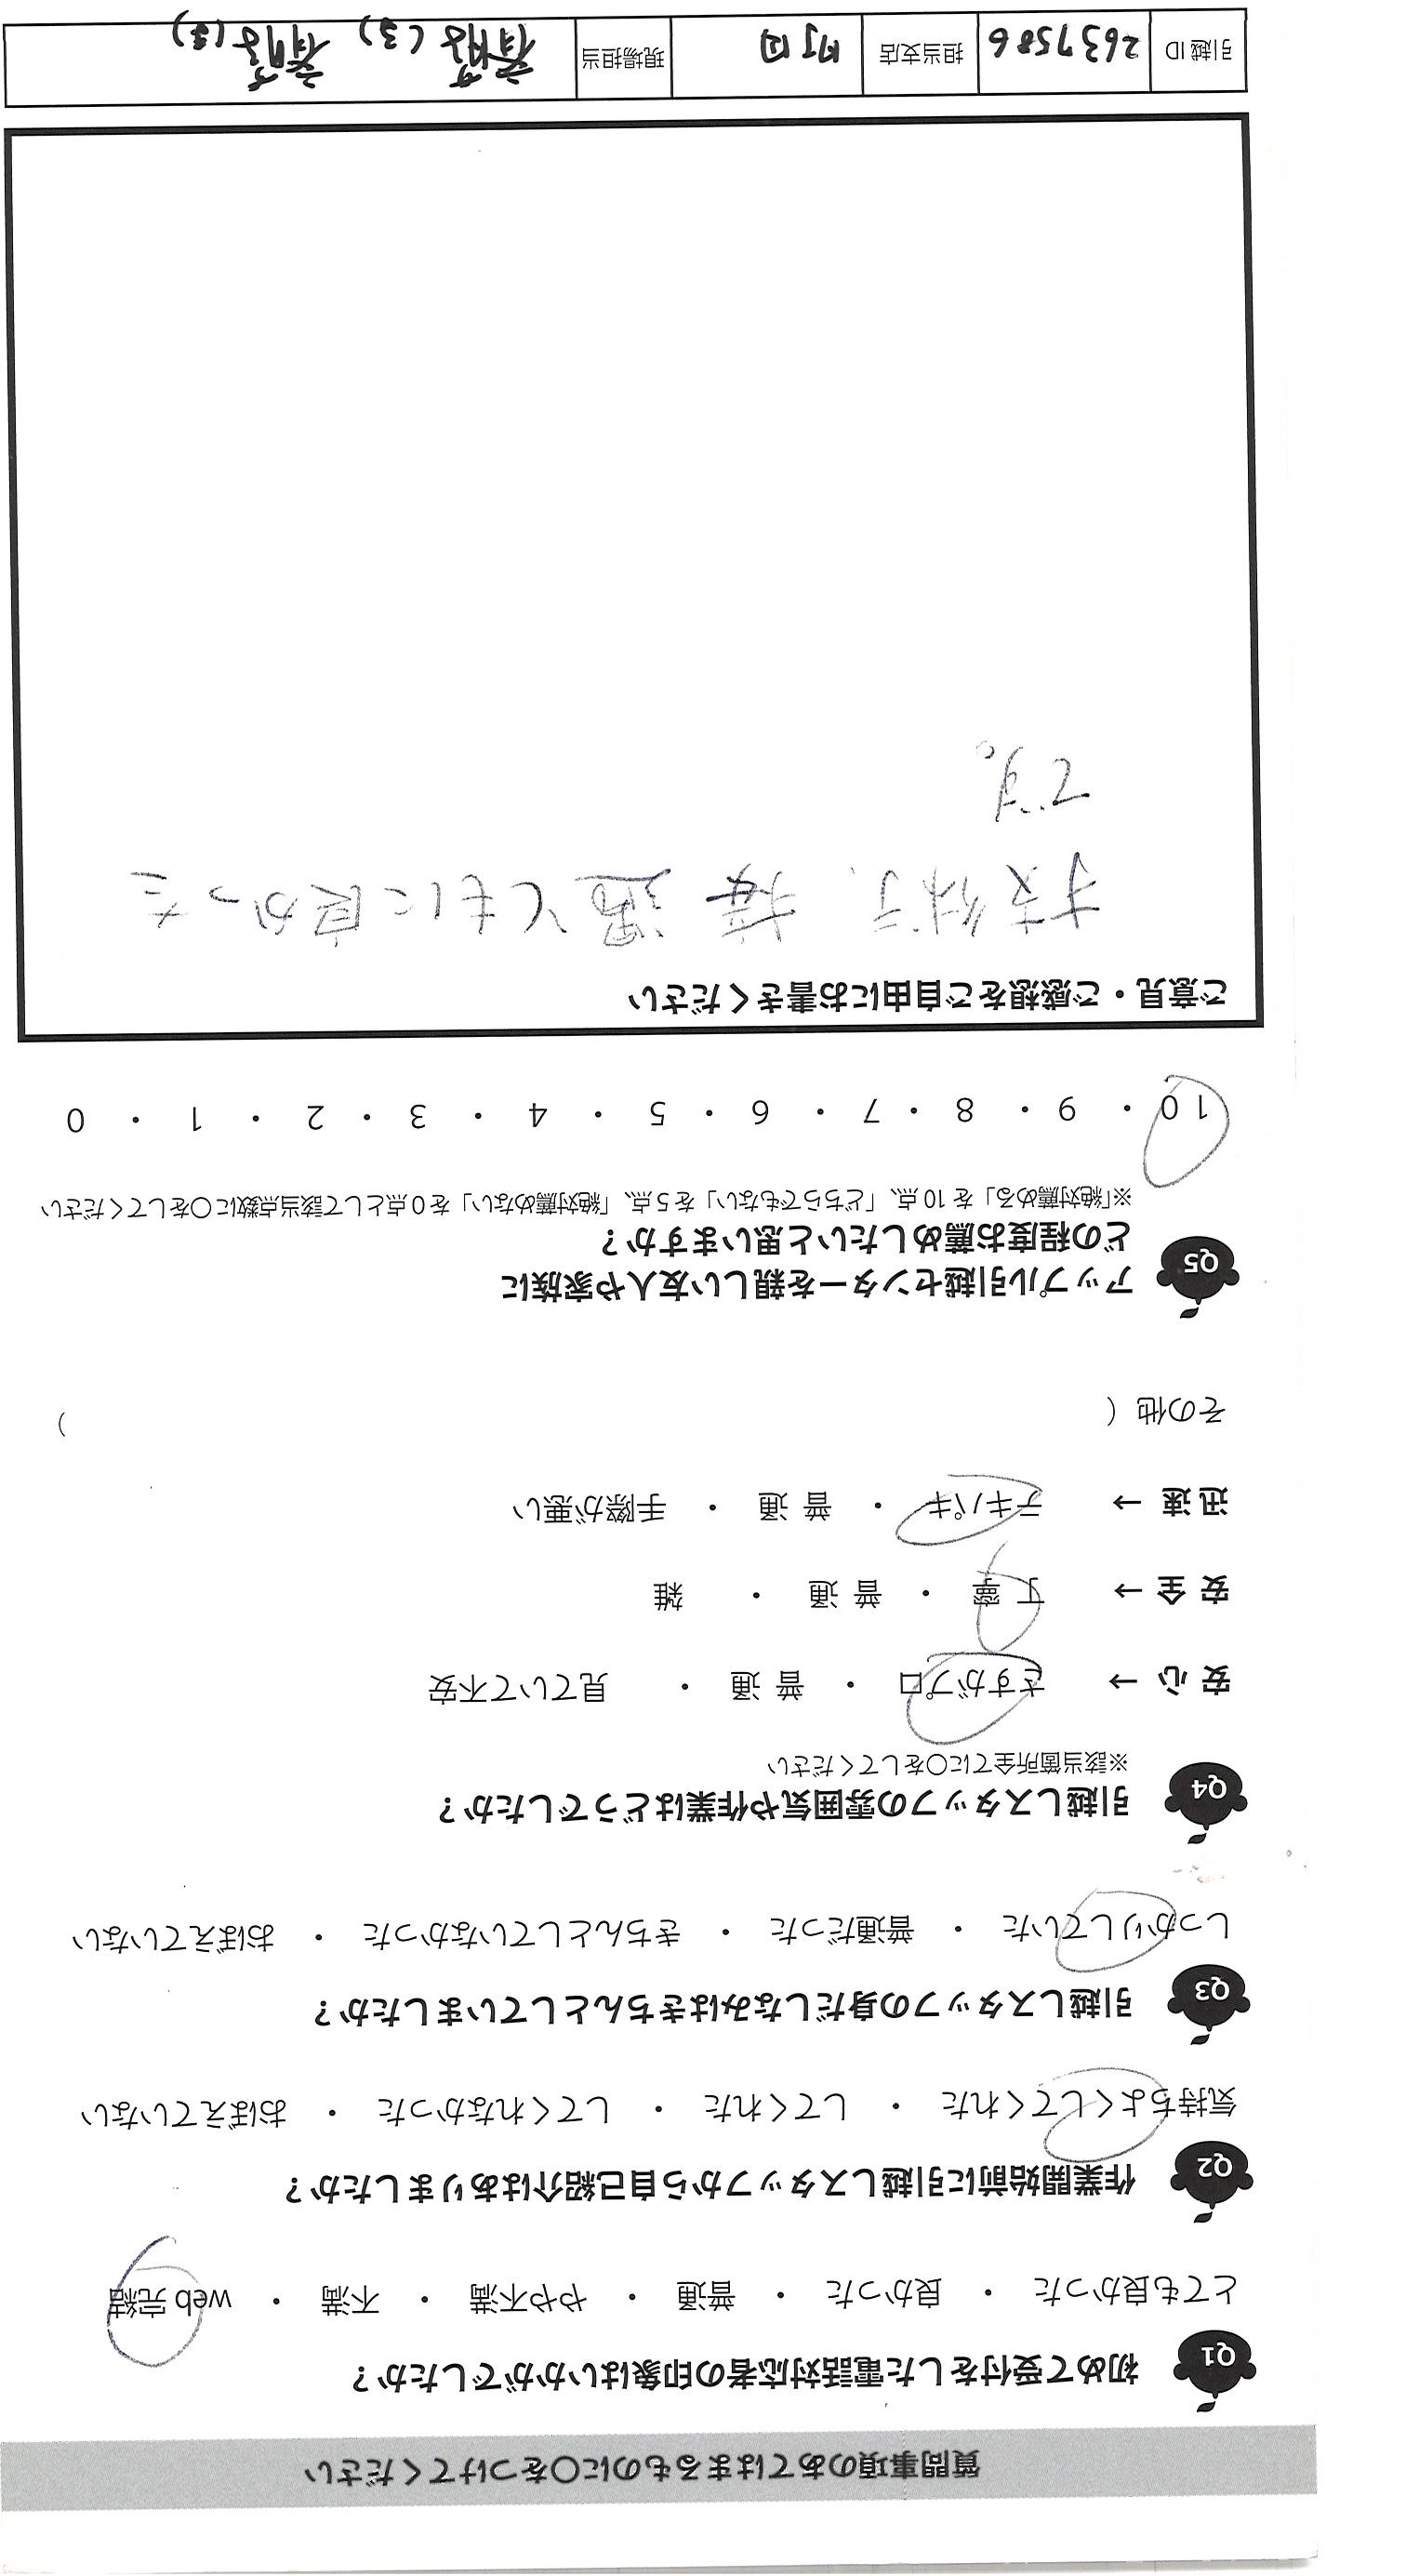 質問事項のあてはまるものに〇をつけてください
Q1 初めて受付をした電話対応者の印象はいかがでしたか？
とても良かった ・ 良かった ・ 普通 ・ やや不満 ・ 不満 ・ web 完結
Q2 作業開始前に引越しスタッフから自己紹介はありましたか？
気持ちよくしてくれた ・ してくれた ・ してくれなかった ・ おぼえていない
Q3 引越しスタッフの身だしなみはきちんとしていましたか？
しっかりしていた ・ 普通だった ・ きちんとしていなかった ・ おぼえていない
Q4 引越しスタッフの雰囲気や作業はどうでしたか？
※該当箇所全てに〇をしてください
安心 → さすがプロ ・ 普通 ・ 見ていて不安
安全 → 丁寧 ・ 普通 ・ 雑
迅速 → テキパキ ・ 普通 ・ 手際が悪い
その他（ ）
Q5 アップル引越センターを親しい友人や家族に
どの程度お薦めしたいと思いますか？
※「絶対薦める」を 10 点、「どちらでもない」を 5 点、「絶対薦めない」を 0 点として該当点数に〇をしてください
10 ・ 9 ・ 8 ・ 7 ・ 6 ・ 5 ・ 4 ・ 3 ・ 2 ・ 1 ・ 0
ご意見・ご感想をご自由にお書きください
技術、接遇ともに良かった
です。
引越 ID 2637586 担当支店 町田 現場担当